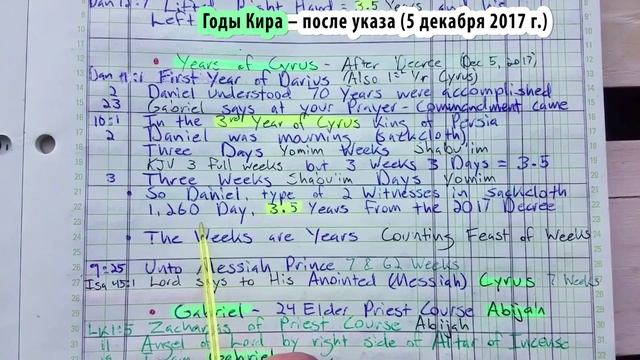 Dan 12:7 Lifted Right Hand = 3.5 Years and his
Left
Годы Кира – после указа (5 декабря 2017 г.)
• Years of Cyrus - After Decree (Dec 5, 2017)
Dan 11:1 First Year of Darius (Also 1st Yr Cyrus)
2 Daniel understood 70 Years were accomplished
23 Gabriel says at your Prayer - Commandment came
10:1 In the 3rd Year of Cyrus King of Persia
2 Daniel was mourning (sackcloth)
Three Days Yomim Weeks Shabu'im
KJV 3 full weeks but 3 Weeks 3 Days = 3.5
3 Three Weeks Shabu'im Days Yomim
• So Daniel, type of 2 Witnesses in sackcloth
1,260 Day, 3.5 Years from the 2017 Decree
• The Weeks are Years Counting Feast of Weeks
9:25 Unto Messiah Prince 7 & 62 Weeks
Isa 45:1 Lord says to His Anointed (Messiah) Cyrus 7 Weeks
• Gabriel - 24 Elder Priest Course Abijah
Lk 1:5 Zacharias of Priest Course Abijah
11 Angel of Lord by right side of Altar of Incense
Gabriel